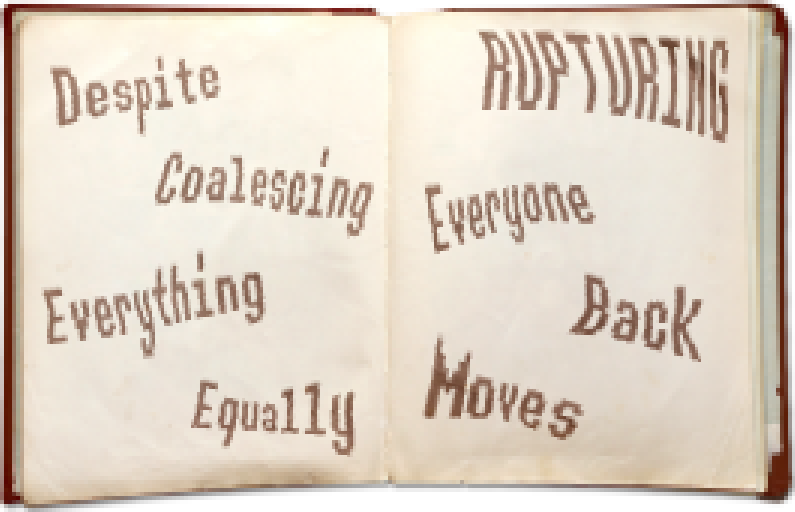 Despite
Coalescing
Everything
Equally
RUPTURING
Everyone
Back
Moves